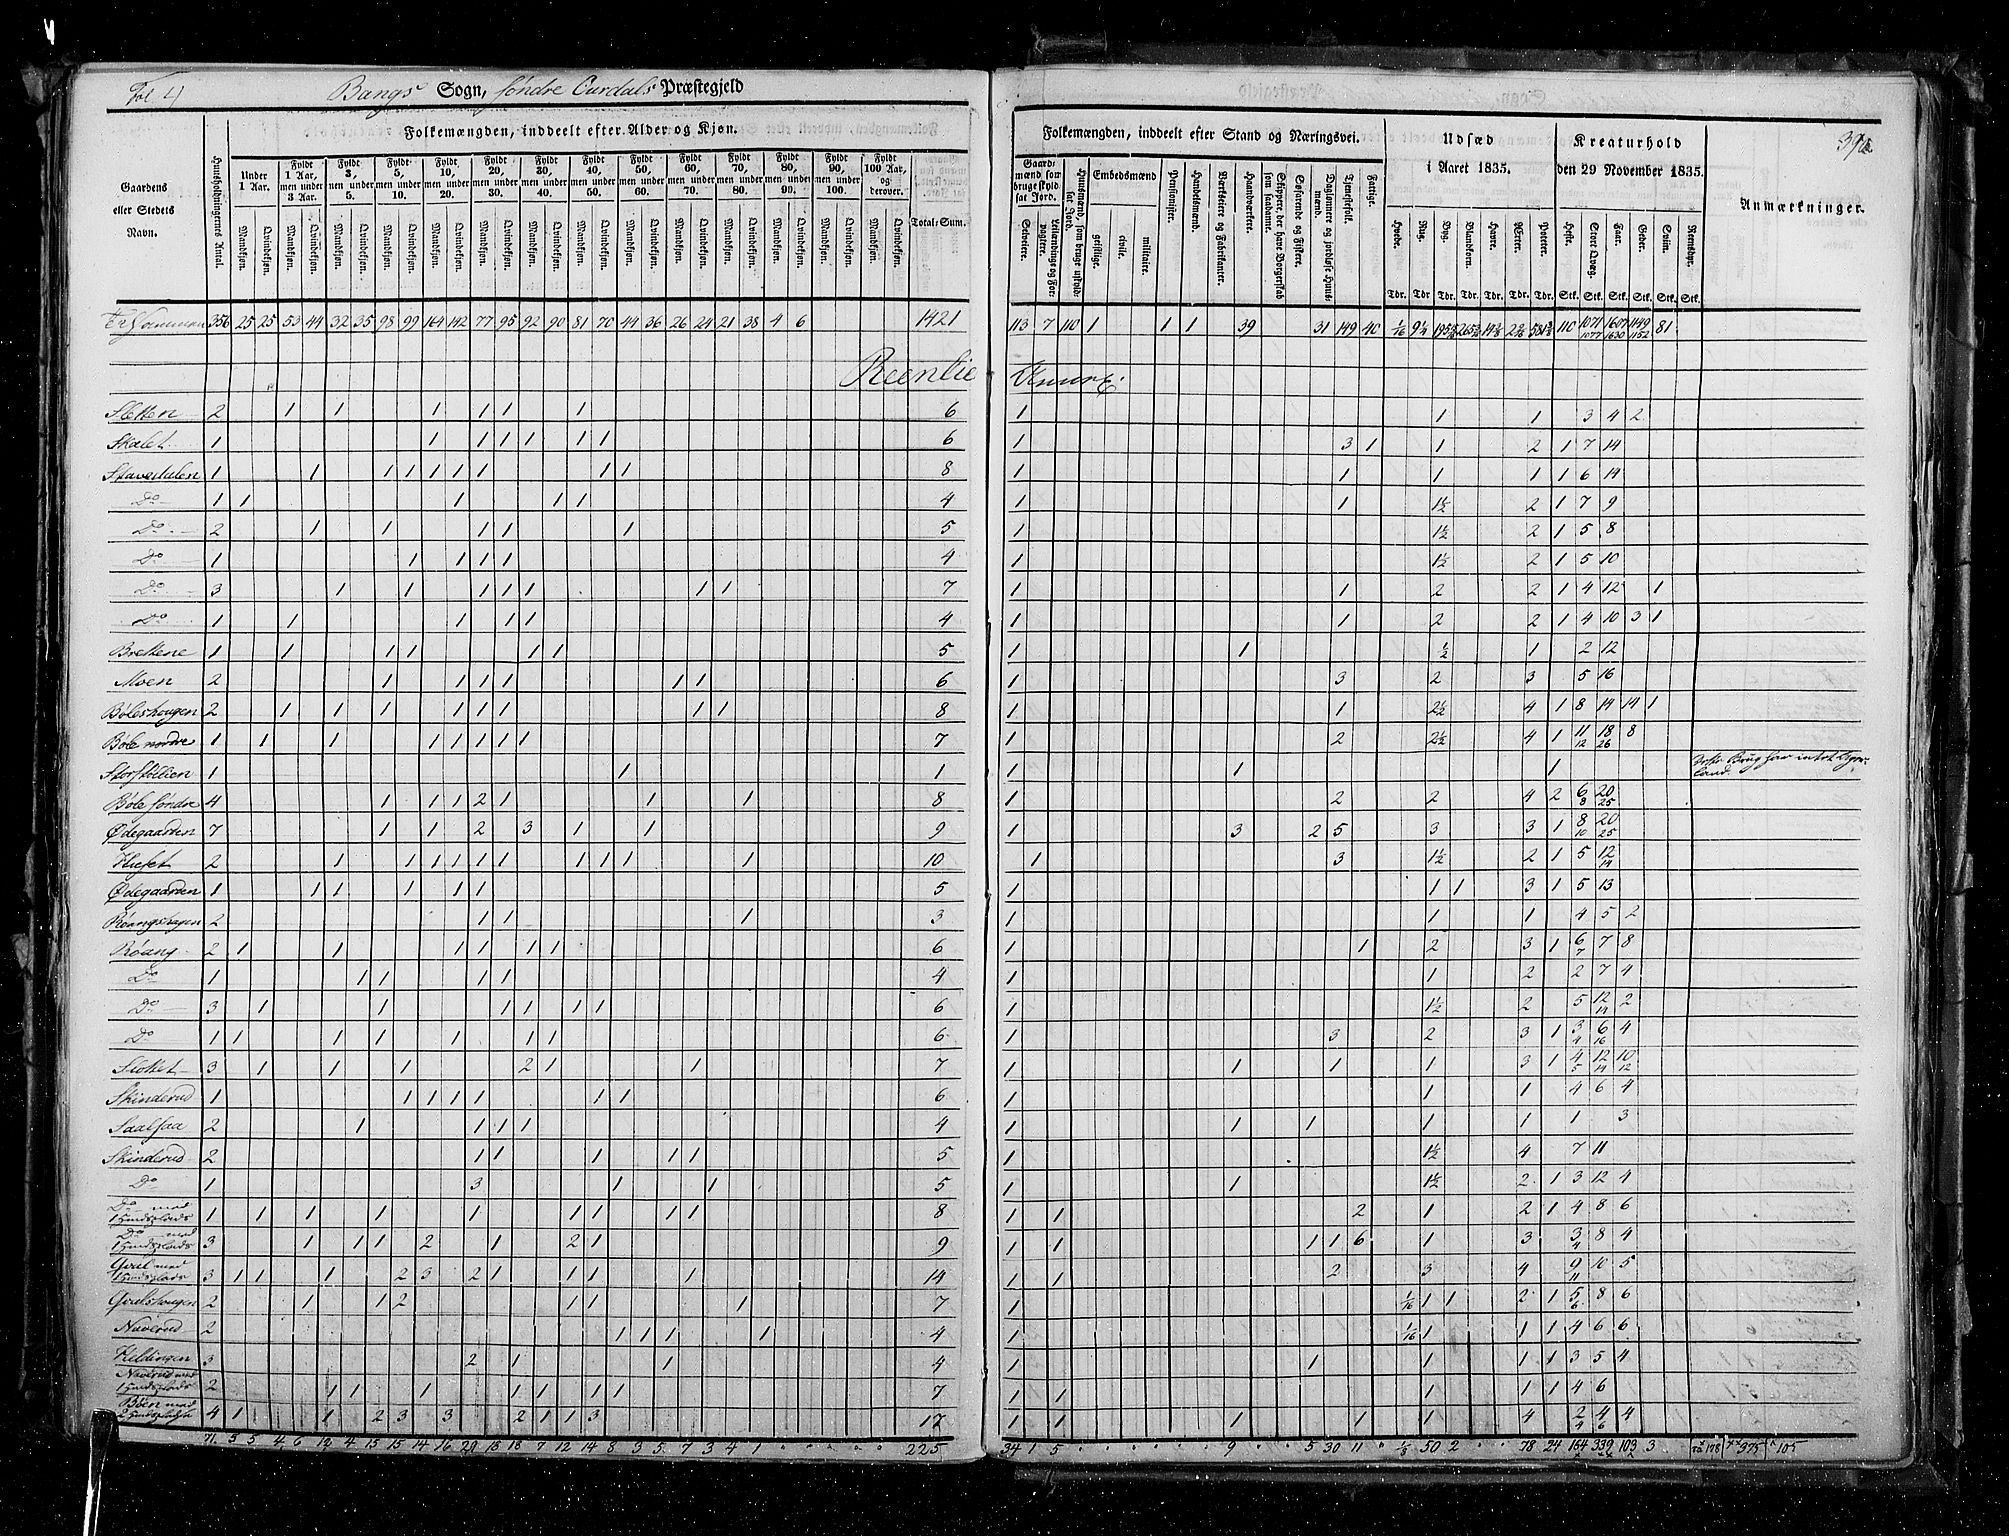 Fol 4
Bangs Sogn, søndre Aurdals Præstegjeld
Gaardens eller Stedets Navn.
Huusholdningernes Antal.
Folkemængden, inddeelt efter Alder og Kjøn.
Under 1 Aar.
Fyldt 1 Aar, men under 3 Aar.
Fyldt 3, men under 5.
Fyldt 5, men under 10.
Fyldt 10, men under 20.
Fyldt 20, men under 30.
Fyldt 30, men under 40.
Fyldt 40, men under 50.
Fyldt 50, men under 60.
Fyldt 60, men under 70.
Fyldt 70, men under 80.
Fyldt 80, men under 90.
Fyldt 90, men under 100.
Fyldt 100 Aar, og derover.
Total-Sum.
Mandkjøn. Qvindekjøn.
Folkemængden, inddeelt efter Stand og Næringsvei.
Gaardmænd som bruge skyldsat Jord.
Selveiere.
Leilændinge og Forpagtere.
Huusmænd, som bruge uskyldsat Jord.
Embedsmænd
geistlige.
civile.
militaire.
Pensionister.
Handelsmænd.
Værkseiere og Fabrikanter.
Haandværkere.
Skippere, der have Borgerskab som saadanne.
Søfarende og Fiskere.
Daglønnere og jordløse Huusmænd.
Tjenestefolk.
Fattige.
Udsæd i Aaret 1835.
Hvede. Rug. Byg. Blandkorn. Havre. Erter. Poteter.
Tdr. Tdr Tdr. Tdr. Tdr. Tdr. Tdr.
Kreaturhold den 29 November 1835.
Heste. Stort Qvæg. Faar. Geder. Sviin. Reensdyr.
Stk. Stk. Stk. Stk. Stk. Stk.
Anmærkninger.
356 25 25 53 44 32 35 98 99 164 142 77 95 92 90 81 70 44 36 26 24 21 38 4 6 1421 113 7 110 1 1 1 39 31 149 40
Reenlie Annex.
Sletten 2 1 1 1 1 1 1 6 1 1 1 3 4 2
Skalet 1 1 1 1 1 1 1 6 1 3 1 1 2 1 7 14
Stavedalen 1 1 1 1 1 1 1 1 1 8 1 1 1 1 1 6 14
Do 1 1 1 1 1 4 1 1 1½ 2 1 7 9
Do 2 1 1 1 1 1 5 1 1½ 2 1 5 8
Do 1 1 1 1 1 4 1 1½ 2 1 5 10
Do 3 1 1 1 1 1 1 1 7 1 1 2 2 1 4 12 1
Do 1 1 1 1 1 4 1 1 2 2 1 4 10 3 1
Brettene 1 1 1 1 1 1 5 1 1 ½ 1 2 12
Moen 2 1 1 1 1 1 1 6 1 3 2 3 5 16
Bøleshougen 2 1 1 1 1 1 1 1 1 8 1 1 2½ 4 1 8 14 14 1
Bøle nordre 1 1 1 1 1 1 1 1 7 1 2 2½ 4 1 11 12 18 26 8
Storstølien 1 1 1 1 1 1 dette Brug har intet Ager land.
Bøle søndre 4 1 1 1 2 1 1 1 8 1 2 2 4 2 6 8 20 25
Ødegaarden 7 1 1 2 3 1 1 9 1 3 2 5 3 3 1 8 10 20 25
2 1 1 1 1 1 1 1 1 1 1 10 1 3 1½ 2 1 5 12 14
Ødegaarden 1 1 1 1 1 1 5 1 1 1 3 1 5 13
Røangshagen 2 1 1 1 3 1 1 1 4 5 2
Røang 2 1 1 1 1 1 1 6 1 1 2 3 1 6 7 7 8
Do 1 1 1 1 1 4 1 1 2 2 7 4
Do 3 1 1 1 1 1 1 6 1 1½ 2 5 12 14 2
Do 1 1 1 1 1 1 1 6 1 3 2 3 1 3 4 6 16 4
Slottet 3 1 1 1 2 1 1 7 1 1 1 1 3 1 4 5 12 14 10 12
Skinderud 1 1 1 1 1 1 1 6 1 1 1 4 6 4
Saalsaa 2 1 1 1 1 4 1 1 1 1 1 1 3
Skinderud 2 1 1 1 1 1 5 1 1½ 4 7 11
Do 1 3 1 1 5 1 1 1½ 2 1 3 12 4
Do med 1 Huusplads 1 1 1 1 1 1 1 1 1 8 1 1 2 1 2 1 4 8 6
Do med 1 Huusplads 3 1 1 1 2 1 2 1 9 1 1 1 1 6 1 3 3 4 8 4
med 1 Huusplads 3 1 1 1 2 3 2 1 1 1 1 14 1 1 2 3 4 9 11 10 5
2 1 1 2 1 1 1 7 1 1/16 1 1 2 1 5 6 8 6
Naverud 2 1 1 1 1 4 1 1/16 1 1 1 4 6 6
Kildingen 3 2 1 1 4 1 1 1 1 1 3 5 4
Naverud med 1 Huusplads 2 1 1 1 1 1 1 1 7 1 1 1 1 1 4 6
Bøen med 2 Huuspladse 4 1 1 2 3 3 2 1 1 3 17 1 1 1 1 1 4 2 4 4 6 4
71. 5 5 4 6 12 4 15 15 14 16 29 18 18 7 12 14 8 3 5 7 3 4 1 225 34 1 5 9 5 30 11 ⅛ 50 2 78 24 164 339 103 3 178 375 105